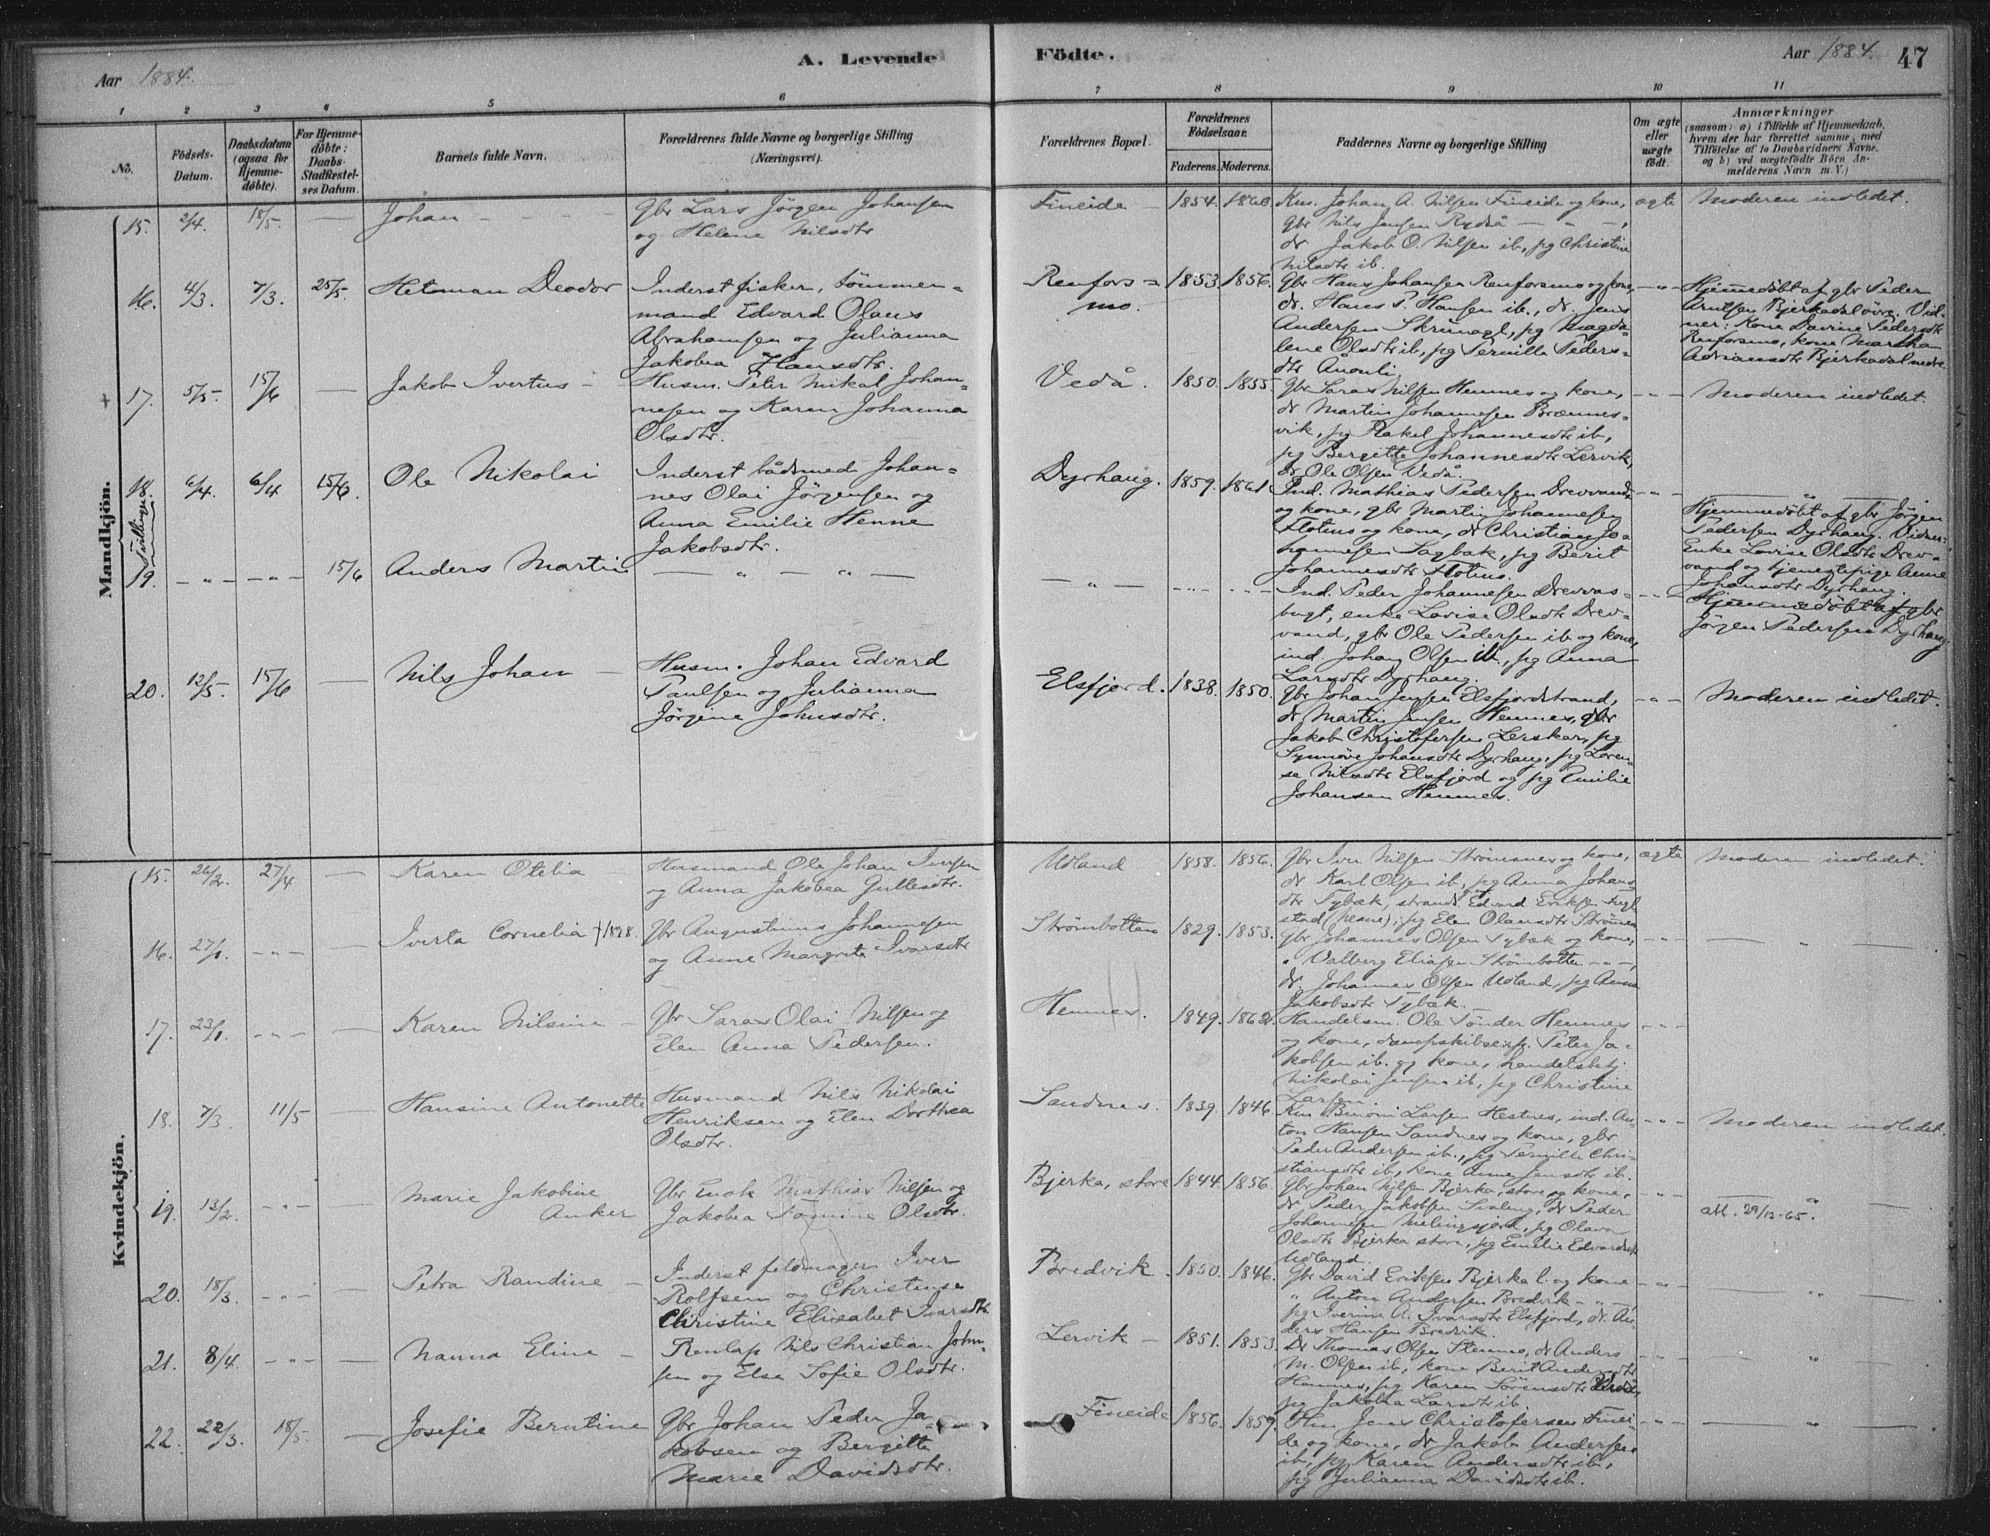 A. Levende Födte.
Aar 1884.
Aar 1884. 47
1 2 3 4 5 6 7 8 9 10 11
No.
Födsels-Datum.
Daabsdatum (ogsaa for Hjemme-döbte).
For Hjemme-döbte: Daabs-Stadfæstel-ses Datum.
Barnets fulde Navn.
Forældrenes fulde Navne og borgerlige Stilling (Næringsvei).
Forældrenes Bopæl.
Forældrenes Födselsaar.
Faderens. Moderens.
Faddernes Navne og borgerlige Stilling
Om ægte eller uægte födt.
Anmærkninger
(saasom: a) i Tilfælde af Hjemmedaab,
hvem der har forrettet samme, med
Tilföielse af to Daabsvidners Navne.
og b) ved uægtefödte Börn An-
melderens Navn m.V.)
Mandkjön.
15. 2/4. 18/5 — Johan
Gbr Lars Jörgen Johansen
og Helene Nilsdtr
Fineide 1854. 1860.
Kus. Johan A. Nilsen Fineide og kone,
gbr Nils Jensen Rydså
dr Jakob O. Nilsen ib., pg Christine
Nilsdtr ib.
ægte Moderen indledet.
16. 4/3. 7/3. 25/5. Hetman Deodor
Inderst fisker, tömmer=
mand Edvard Olaus
Abrahamsen og Julianna
Jakobea Hansdtr.
Renfors=
mo.
1853. 1856.
Gbr Hans Johansen Renforsmo og kone,
dr. Hans P. Hansen ib., dr. Jens
Andersen Skrunagl, pg Magda=
lene Olsdtr ib, pg Pernille Peders=
dtr Ånonli
Hjemmedöbt af gbr Peder
Arntsen Bjerkadal övre. Vid=
ner: Kone Davine Pedersdtr
Renforsmo, kone Martha
Adriansdtr Bjerkadal nedre.
17. 5/5. 15/6 — Jakob Ivertus
Husm. Peter Mikal Johan=
nesen og Karen Johanna
Olsdtr.
Vedå. 1850. 1855.
Gbr Lars Nilsen Hemnes og kone,
dr Martin Johannesen Brennes=
vik, pg Rakel Johannesdtr ib,
pg Bergitte Johannesdtr Lervik,
dr Ole Olsen Vedå.
Moderen indledet.
18. 6/4. 6/4 15/6. Ole Nikolai
Tvillinger
Inderst bådsmed Johan=
nes Olai Jörgensen og
Anna Emilie Henne
Jakobsdtr.
Dyrhaug. 1859. 1861
Ind. Mathias Pedersen Drevvand
og kone, gbr Martin Johannesen
Flotnes og kone, dr Christian Jo=
hannesen Sagbak, pg Berit
Johannesdtr Flotnes.
Hjemmedöbt af gbr Jörgen
Pedersen Dyrhaug. Vidn:
Enke Lovise Olsdtr Drev=
vand og tjenestepige Anne
Johansdtr Dyrhaug.
19. 15/6 Anders Martin
Ind. Peder Johannesen Drevvas=
bugt, enke Lovise Olsdtr Drev=
vand, gbr Ole Pedersen ib og kone,
ind. Johan Olsen ib, pg Anna
Larsdtr Dyrhaug.
Hjemmedöbt af gbr
Jörgen Pedersen Dyrhaug.
20. 12/5. 15/6 — Nils Johan
Husm. Johan Edvard
Paulsen og Julianna
Jörgine Johnsdtr.
Elsfjord. 1838. 1850.
Gbr Johan Jensen Elsfjordstrand,
dr Martin Jensen Hemnes, gbr
Jakob Christofersen Lerskar, pg
Synnöve Johansdtr Dyrhaug, pg Loren=
se Nilsdtr Elsfjord og pg Emilie
Johansen Hemnes.
Moderen indledet.
Kvindekjön.
15. 26/2. 27/4 — Karen Otelia
Husmand Ole Johan Iversen
og Anna Jakobea Gullesdtr.
Utland 1858. 1856.
Gbr Iver Nilsen Strömsnes og kone,
dr Karl Olsen ib, pg Anna Johans
dtr Sybæk, strands Edvard Eriksen
stad (Nesne), pg Elen Olausdtr Strömsnes
ægte Moderen indledet.
16. 27/1. Iverta Cornelia † 1898.
Gbr Augustinus Johannesen
og Anne Margrete Ivarsdtr
Strömbotten 1829. 1853.
Gbr Johannes Olsen Sybæk og kone,
" Valberg Eliasen Strömbotten
dr. Johannes Olsen Utland, pg Anna
Jakobsdtr Sybæk.
17. 23/1. Karen Nilsine
Gbr Lars Olai Nilsen og
Elen Anna Pedersen.
Hemnes. 1849. 1862.
Handelsm. Ole Tönder Hemnes
og kone, dampskibsexp. Peter Ja=
kobsen ib. og kone, handelsbetj
Nikolai Jensen ib, pg Christine
Larsen.
18. 7/3. 11/5 — Hansine Antonette
Husmand Nils Nikolai
Henriksen og Elen Dorthea
Olsdtr.
Sandnes. 1839. 1846
Kus Benoni Larsen Hestnes, ind. An=
ton Hansen Sandnes og kone, gbr
Peder Andersen ib., pg Pernille Chri=
stiansdtr ib, kone Anne Jensdtr ib.
Moderen indledet.
19. 13/2. Marie Jakobine
Anker
Gbr Enok Mathias Nilsen og
Jakobea Olsdtr.
Bjerka, store 1844. 1856.
Gbr Johan Nilsen Bjerka, store og kone,
dr. Peder Jakobsen, dr Peder
Johannesen, pg Olava
Olsdtr Bjerka store, pg Emilie Edvardsdtr
Utland.
att. 29/12-65.
20. 18/3. Petra Randine
Inderst feldmager Iver
Rolfsen og Christense
Christine Elisabet Ivarsdtr.
Bredvik. 1850. 1846.
Gbr David Eriksen Bjerka l. og kone
" Anton Andersen Bredvik
pg Iverine A. Ivarsdtr Elsfjord, dr. An=
ders Hansen Bredvik.
21. 8/4. Nanna Eline
Renlap Nils Christian John=
sen og Else Sofie Olsdtr.
Lervik 1851. 1853.
Dr Thomas Olsen Stennes, dr Anders
M. Olsen ib, kone Berit Andersdtr
Hemnes, pg Karen Sörensdtr
pg Jakobea Larsdtr ib.
22. 22/3. 18/5. — Josefie Berntine
Gbr Johan Peder Ja=
kobsen og Bergitte
Marie Davidsdtr.
Fineide 1856. 1859.
Hm Jens Christofersen Finei=
de og kone, dr Jakob Andersen
ib, pg Karen Andersdtr ib,
pg Julianna Davidsdtr ib.